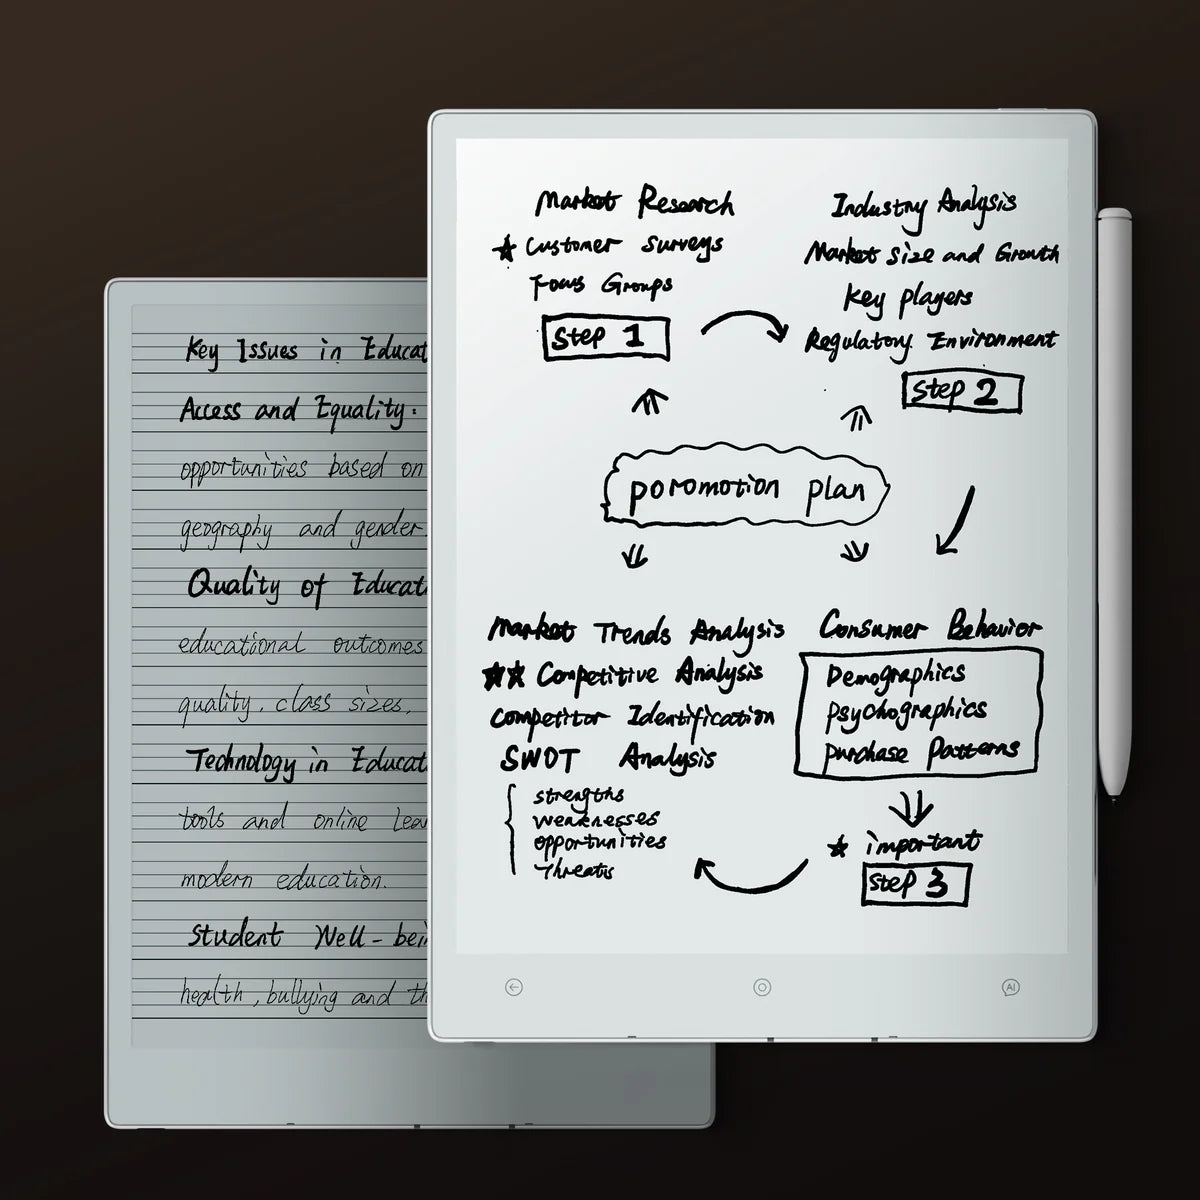 Market Research
Customer surveys
Focus Groups
Step 1
Industry Analysis
Market size and Growth
Key players
Regulatory Environment
Step 2
poromotion plan
Market Trends Analysis
Competitive Analysis
Competitor Identification
SWOT Analysis
strengths
weaknesses
opportunities
Threats
Consumer Behavior
Demographics
Psychographics
Purchase Patterns
important
Step 3
AI
Key Issues in Educat
Access and Equality.
opportunities based on
geography and gender.
Quality of Educat
educational outcomes
quality, class sizes,
Technology in Educat
tools and online lea
modern education.
Student Well-bei
health, bullying and th